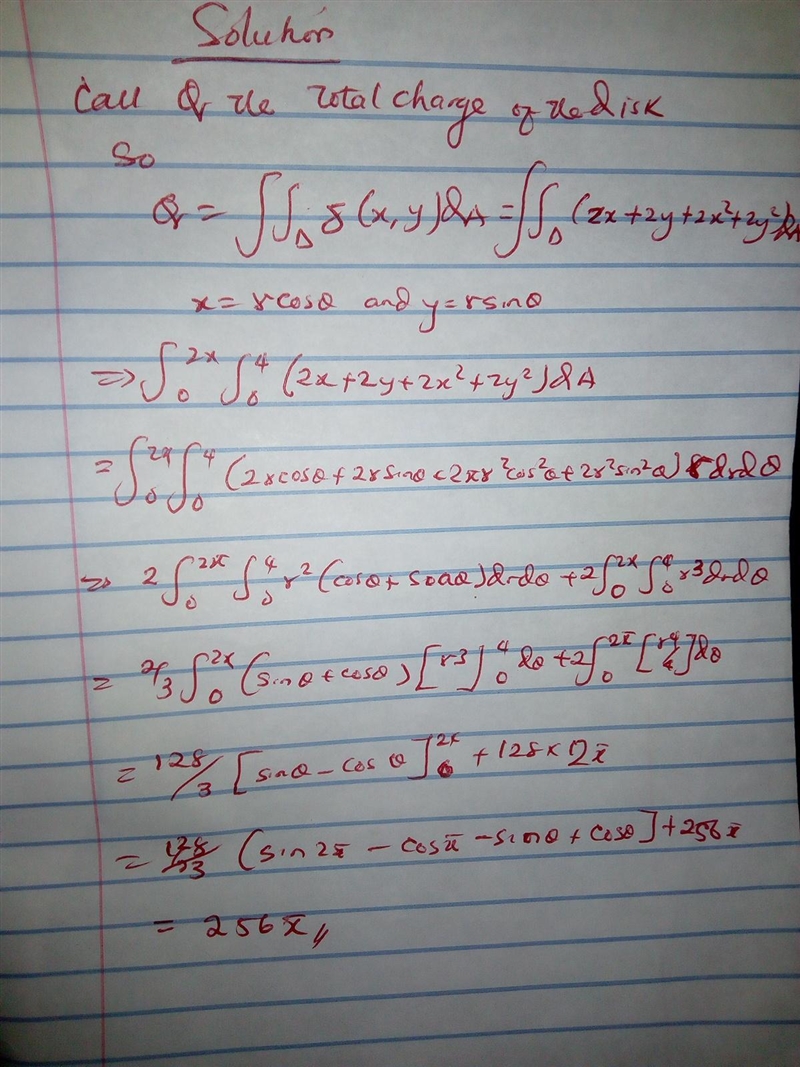 Solution
Call Q the Total charge of the Disk
So
Q = ∫∫_D δ(x,y)dA = ∫∫_D (2x+2y+2x²+2y²)dA
x = rcosθ and y = rsinθ
⇒ ∫₀^2π ∫₀⁴ (2x+2y+2x²+2y²)dA
= ∫₀^2π ∫₀⁴ (2rcosθ + 2rsinθ + 2r²cos²θ + 2r²sin²θ) r drdθ
⇒ 2∫₀^2π ∫₀⁴ r²(cosθ + sinθ)drdθ + 2∫₀^2π ∫₀⁴ r³drdθ
= 2/3 ∫₀^2π (sinθ + cosθ)[r3]₀⁴ dθ + 2∫₀^2π [r4/4]dθ
= 128/3 [sinθ - cosθ]₀^2π + 128 × 2π
= 128/3 (sin2π - cosπ - sinθ + cosθ] + 256π
= 256π,,